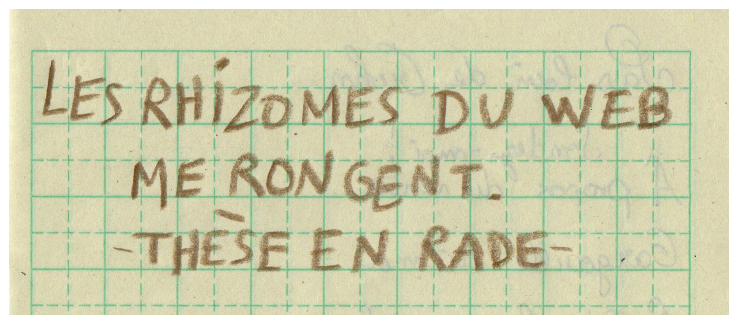 LES RHiZOMES DU WEB
ME RONGENT.
-THÈSE EN RADE-